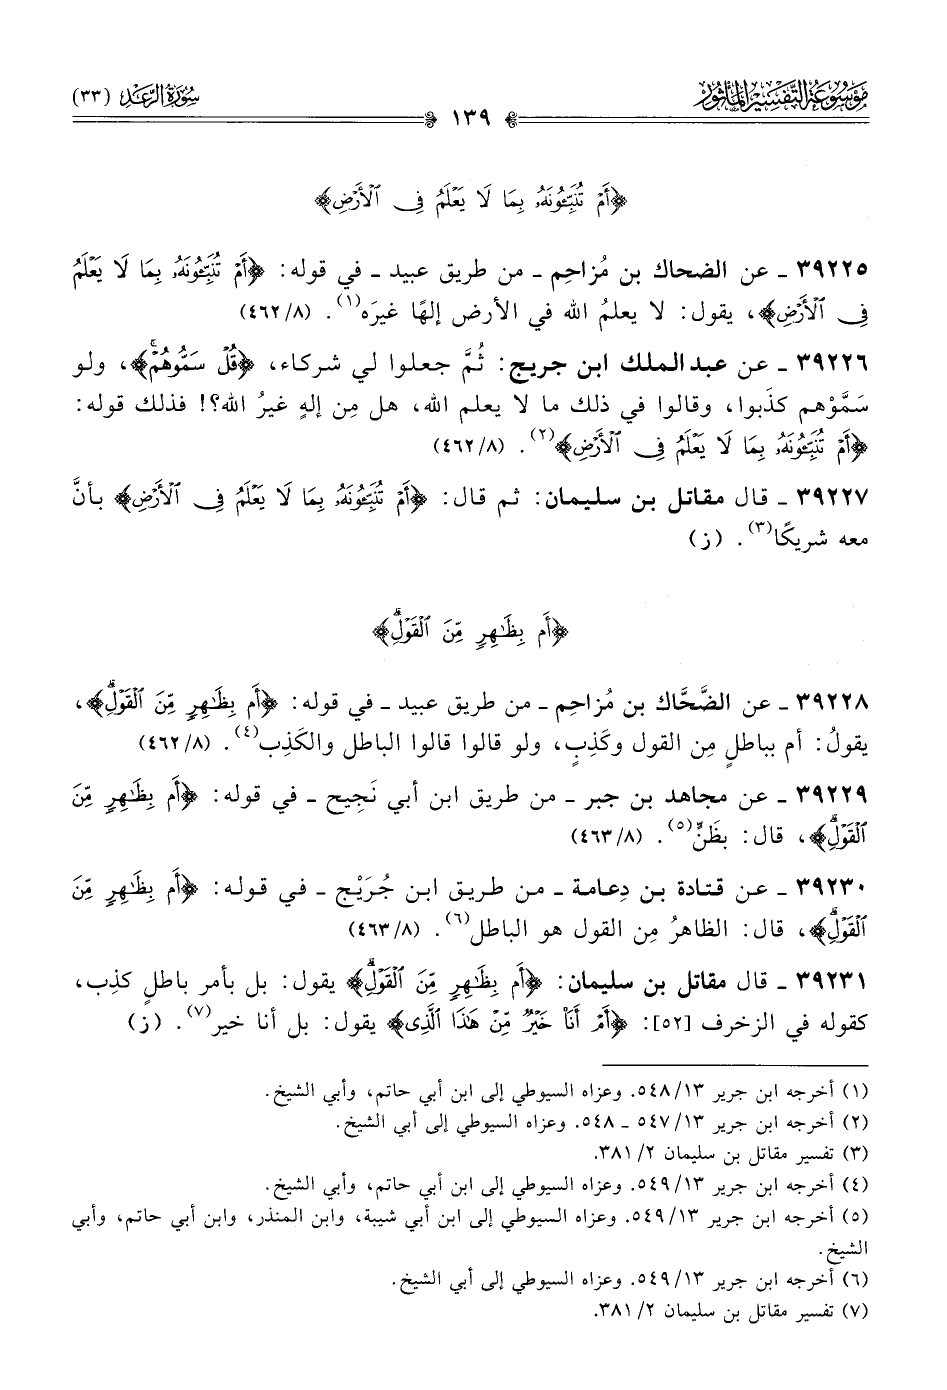 مَوْسُوعَة التَّفْسِير المَأْثُور
سُورَةُ الرَّعْدِ (٣٣)
١٣٩
﴿أَمْ تُنَبِّـُٔونَهُۥ بِمَا لَا يَعْلَمُ فِى ٱلْأَرْضِ﴾
٣٩٢٢٥ ـ عن الضحاك بن مُزاحِم ـ من طريق عبيد ـ في قوله: ﴿أَمْ تُنَبِّـُٔونَهُۥ بِمَا لَا يَعْلَمُ
فِى ٱلْأَرْضِ﴾، يقول: لا يعلمُ الله في الأرض إلهًا غيرَه(١). (٨/ ٤٦٢)
٣٩٢٢٦ ـ عن عبد الملك ابن جريج: ثُمَّ جعلوا لي شركاء، ﴿قُلْ سَمُّوهُمْۚ﴾، ولو
سَمَّوْهم كذَبوا، وقالوا في ذلك ما لا يعلم الله، هل مِن إلهٍ غيرُ الله؟! فذلك قوله:
﴿أَمْ تُنَبِّـُٔونَهُۥ بِمَا لَا يَعْلَمُ فِى ٱلْأَرْضِ﴾(٢). (٨/ ٤٦٢)
٣٩٢٢٧ ـ قال مقاتل بن سليمان: ثم قال: ﴿أَمْ تُنَبِّـُٔونَهُۥ بِمَا لَا يَعْلَمُ فِى ٱلْأَرْضِ﴾ بأنَّ
معه شريكًا(٣). (ز)
﴿أَم بِظَـٰهِرٍ مِّنَ ٱلْقَوْلِۗ﴾
٣٩٢٢٨ ـ عن الضَّحَّاك بن مُزاحِم ـ من طريق عبيد ـ في قوله: ﴿أَم بِظَـٰهِرٍ مِّنَ ٱلْقَوْلِۗ﴾،
يقولُ: أم بباطلٍ مِن القول وكَذِبٍ، ولو قالوا قالوا الباطل والكَذِب(٤). (٨/ ٤٦٢)
٣٩٢٢٩ ـ عن مجاهد بن جبر ـ من طريق ابن أبي نَجِيح ـ في قوله: ﴿أَم بِظَـٰهِرٍ مِّنَ
ٱلْقَوْلِۗ﴾، قال: بظَنٍّ(٥). (٨/ ٤٦٣)
٣٩٢٣٠ ـ عن قتادة بن دِعامة ـ من طريق ابن جُرَيْج ـ في قوله: ﴿أَم بِظَـٰهِرٍ مِّنَ
ٱلْقَوْلِۗ﴾، قال: الظاهرُ مِن القول هو الباطل(٦). (٨/ ٤٦٣)
٣٩٢٣١ ـ قال مقاتل بن سليمان: ﴿أَم بِظَـٰهِرٍ مِّنَ ٱلْقَوْلِۗ﴾ يقول: بل بأمر باطلٍ كذِب،
كقوله في الزخرف [٥٢]: ﴿أَمْ أَنَا۠ خَيْرٌ مِّنْ هَـٰذَا ٱلَّذِى﴾ يقول: بل أنا خير(٧). (ز)
(١) أخرجه ابن جرير ١٣/ ٥٤٨. وعزاه السيوطي إلى ابن أبي حاتم، وأبي الشيخ.
(٢) أخرجه ابن جرير ١٣/ ٥٤٧ ـ ٥٤٨. وعزاه السيوطي إلى أبي الشيخ.
(٣) تفسير مقاتل بن سليمان ٢/ ٣٨١.
(٤) أخرجه ابن جرير ١٣/ ٥٤٩. وعزاه السيوطي إلى ابن أبي حاتم، وأبي الشيخ.
(٥) أخرجه ابن جرير ١٣/ ٥٤٩. وعزاه السيوطي إلى ابن أبي شيبة، وابن المنذر، وابن أبي حاتم، وأبي
الشيخ.
(٦) أخرجه ابن جرير ١٣/ ٥٤٩. وعزاه السيوطي إلى أبي الشيخ.
(٧) تفسير مقاتل بن سليمان ٢/ ٣٨١.